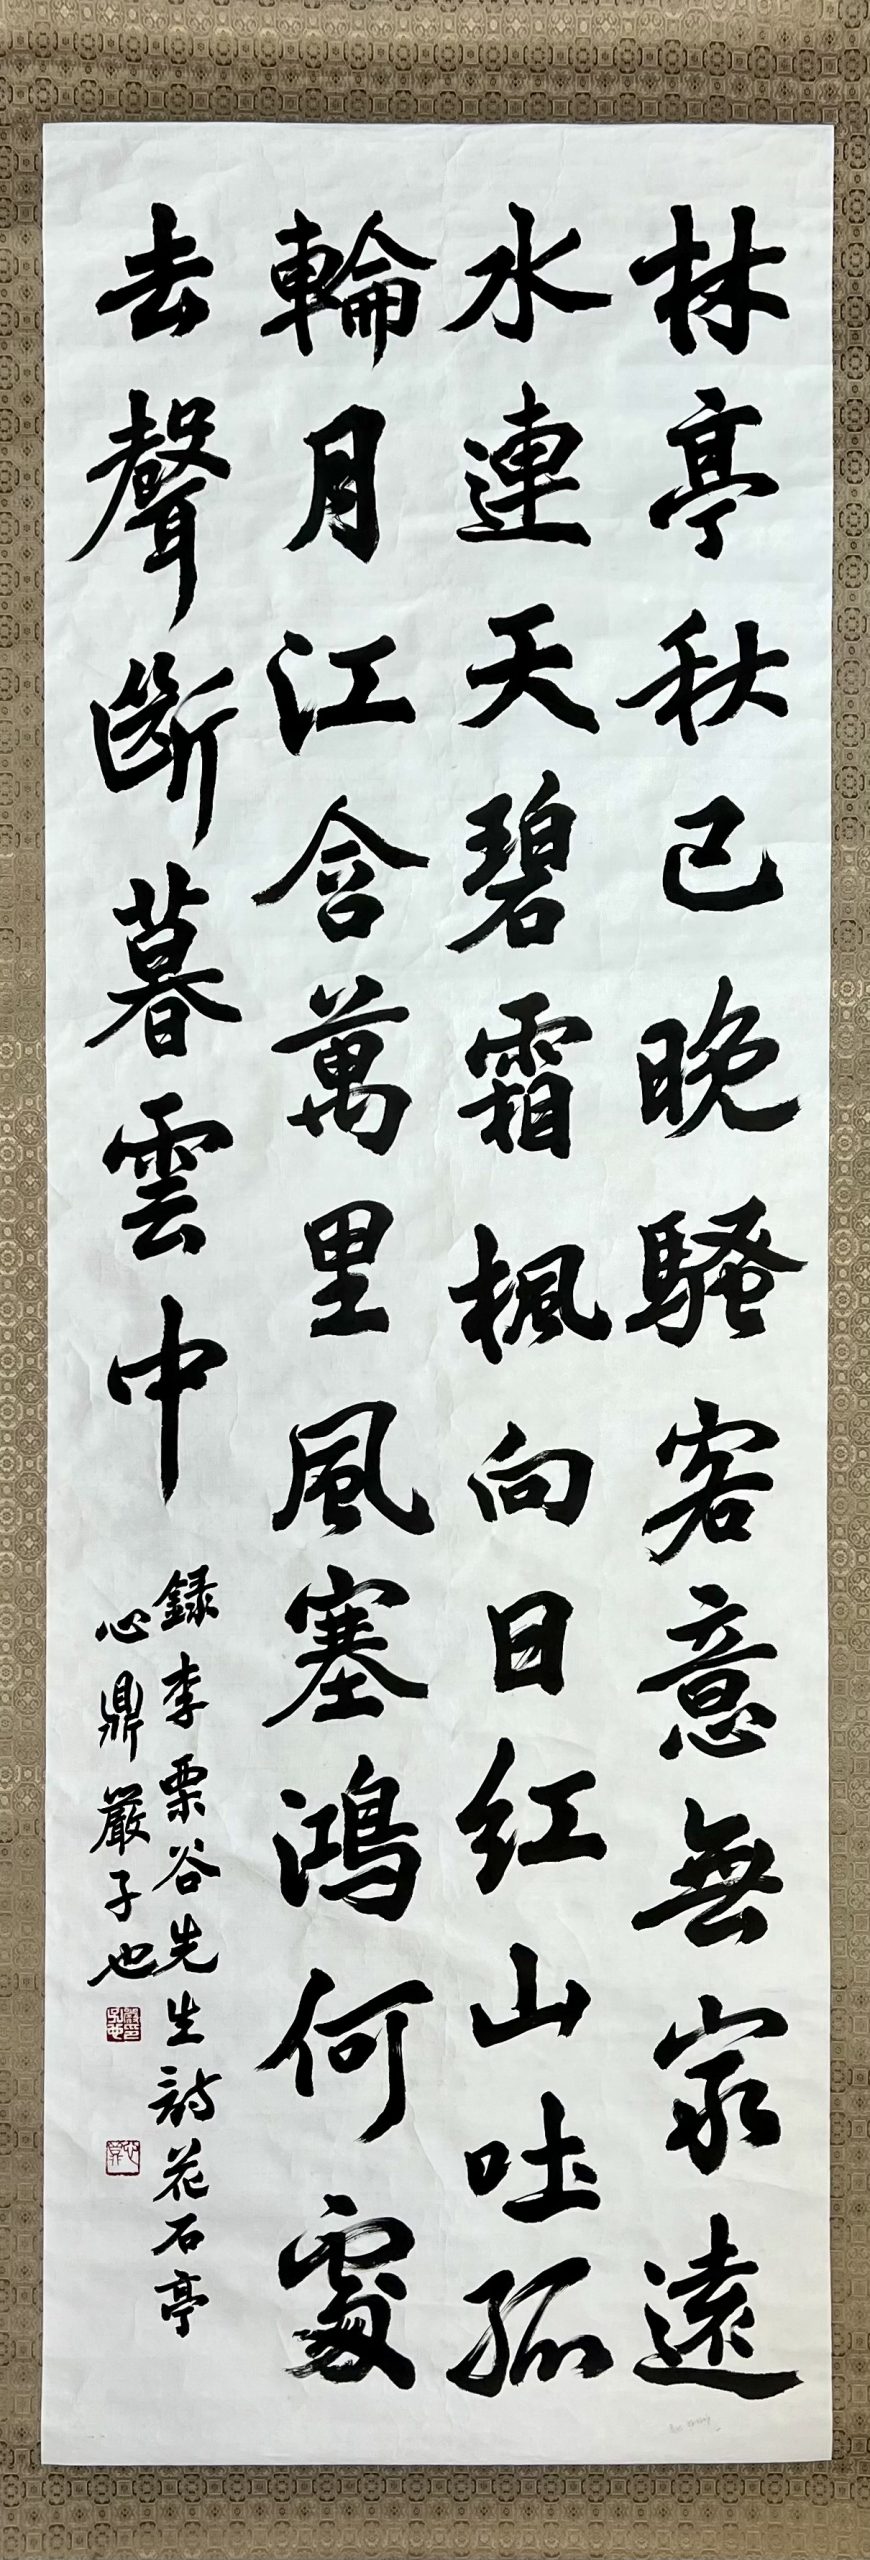 林亭秋已晚騷客意無窮遠
水連天碧霜楓向日紅山吐孤
輪月江含萬里風塞鴻何處
去聲斷暮雲中
録李栗谷先生詩花石亭
心鼎嚴子也